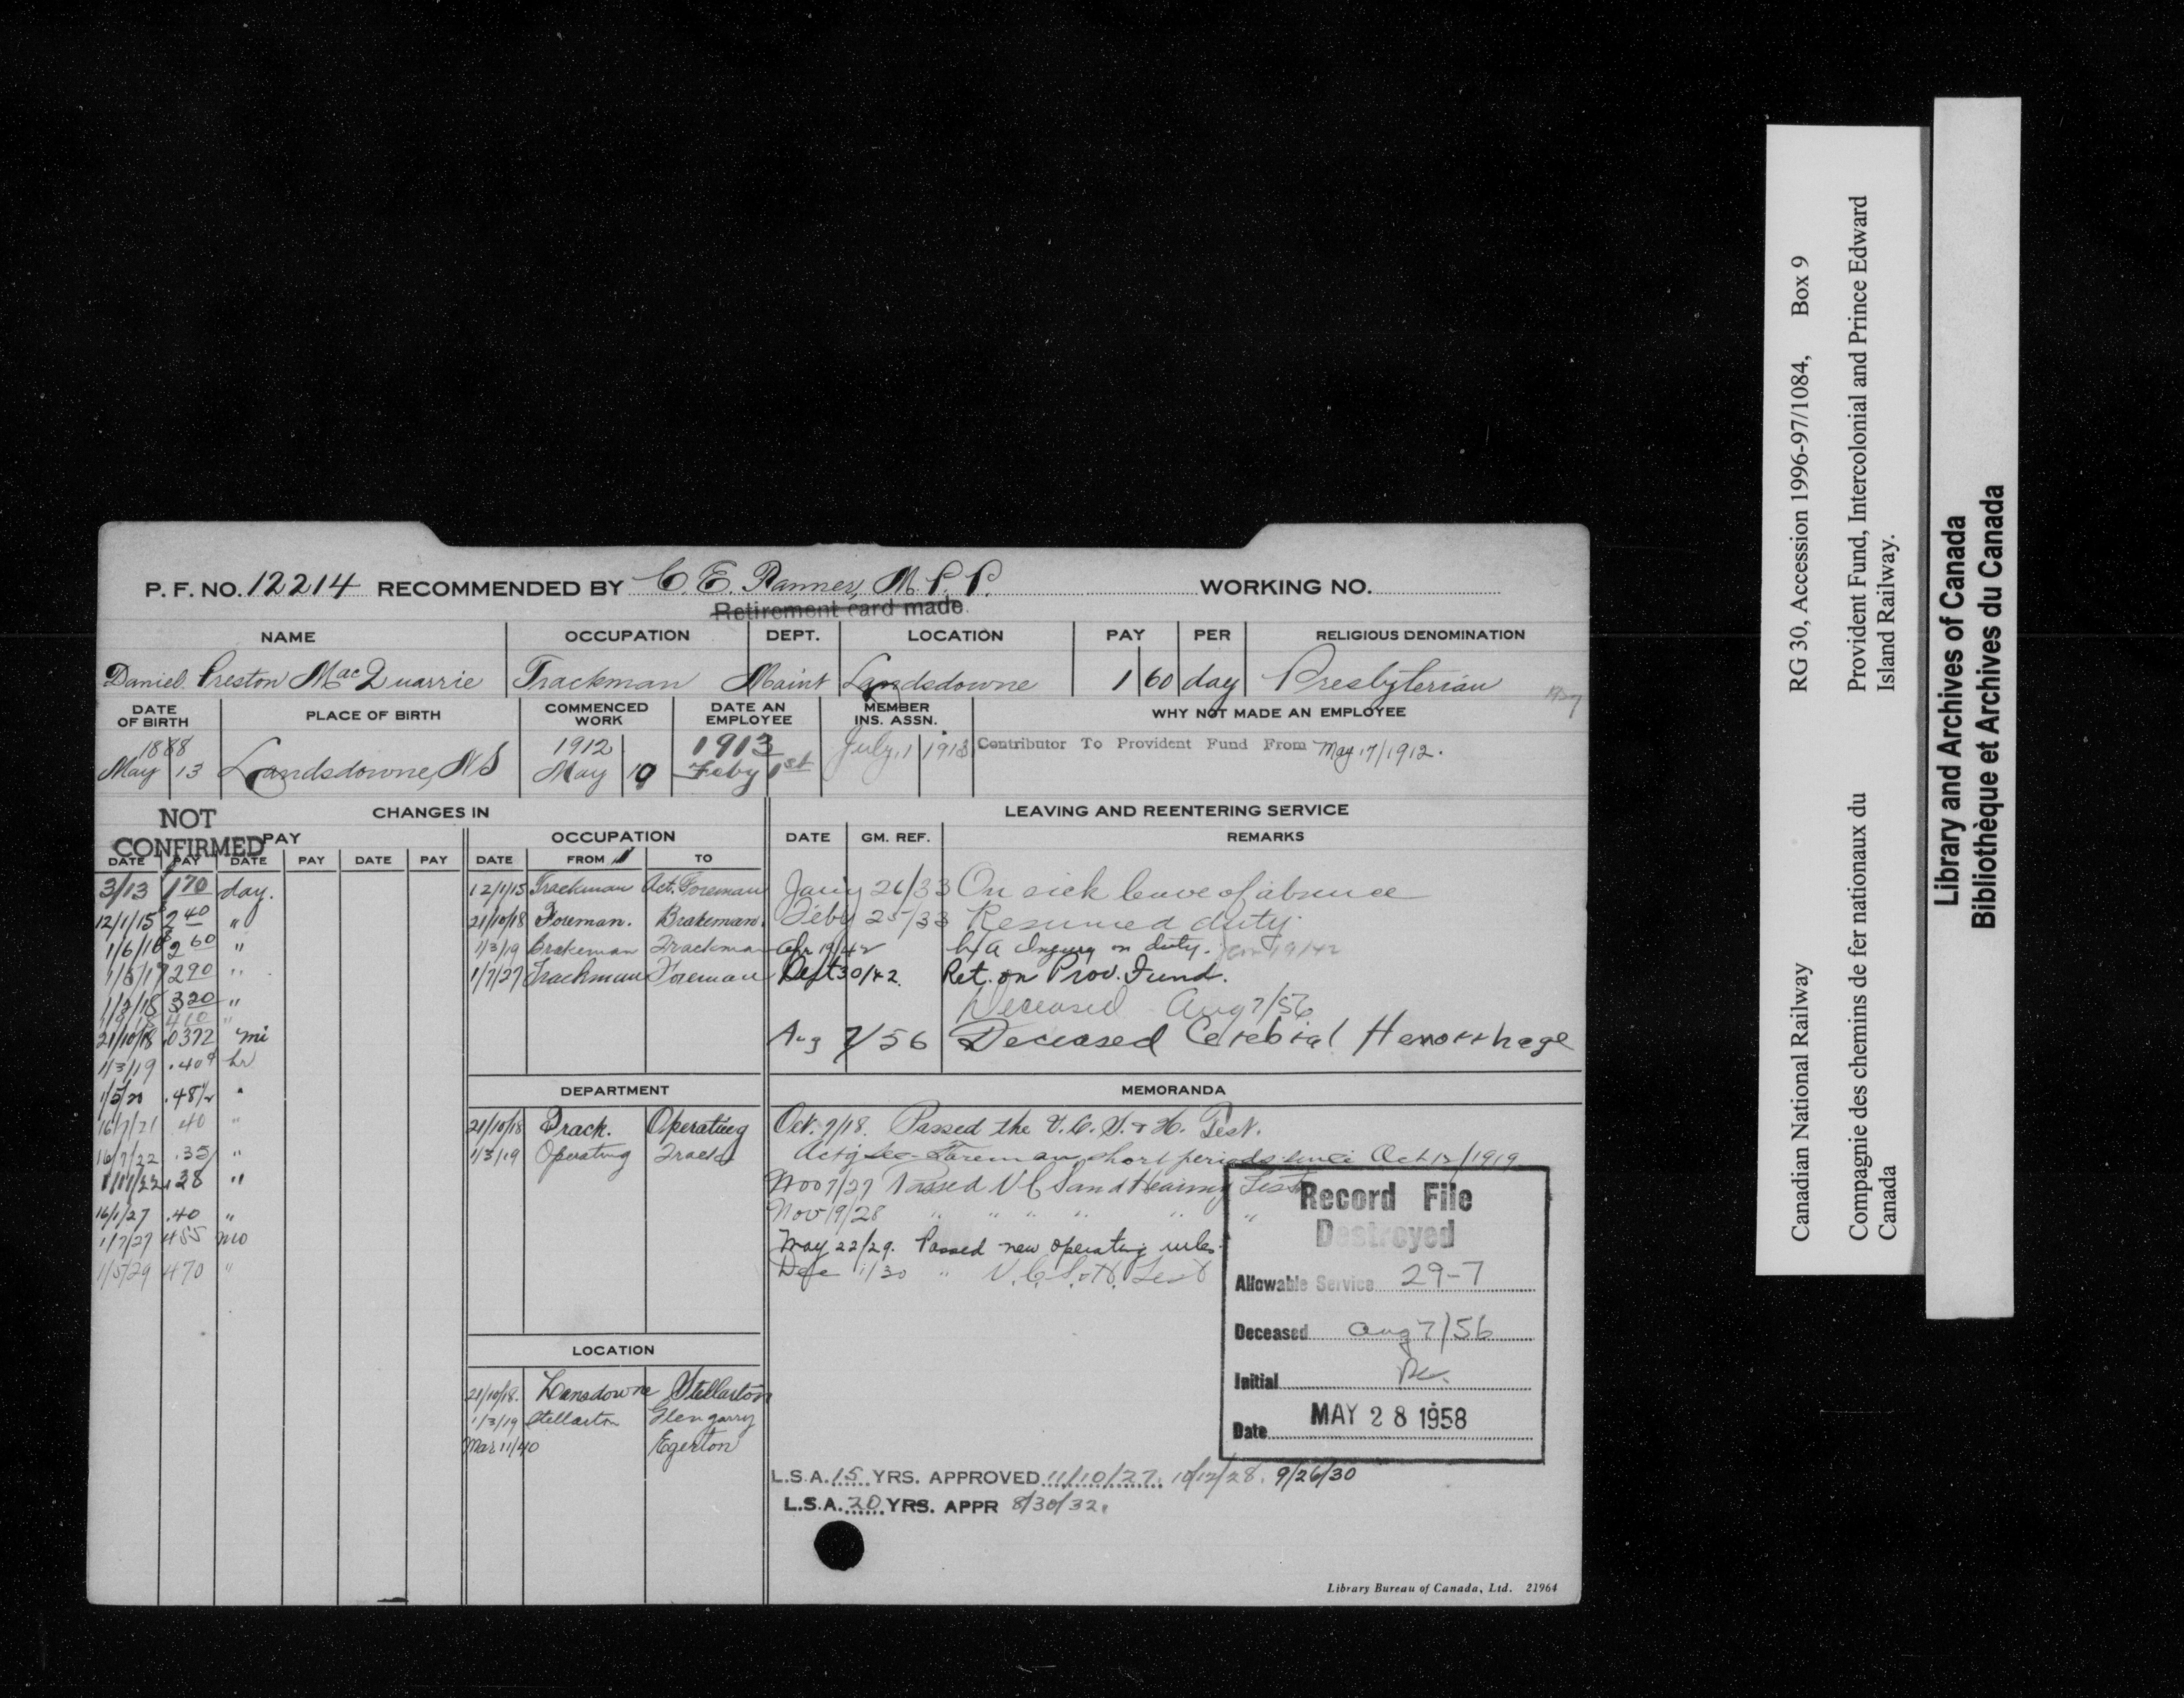 P. F. NO. 12214 RECOMMENDED BY C. E. Tanner, M. P. P. WORKING NO.
Retirement card made
NAME OCCUPATION DEPT. LOCATION PAY PER RELIGIOUS DENOMINATION
Daniel Preston MacQuarrie Trackman Maint Landsdowne 1 60 day Presbyterian
DATE OF BIRTH PLACE OF BIRTH COMMENCED WORK DATE AN EMPLOYEE MEMBER INS. ASSN. WHY NOT MADE AN EMPLOYEE
1888 May 13 Landsdowne, N S 1912 May 19 1913 Feby 1st July 1 1913 Contributor To Provident Fund From May 17/1912.
NOT CONFIRMED
CHANGES IN
PAY
DATE PAY DATE PAY DATE PAY
3/13 1 70 day.
12/1/15 2 40 "
1/6/16 2 60 "
1/5/17 2 90 "
1/2/18 3 20 "
1/9/18 4 10 "
21/10/18 .0372 mi
1/3/19 .40 hr
1/5/20 .48½ "
16/7/21 .40 "
16/7/22 .35 "
1/11/22 .38 "
16/1/27 .40 "
1/7/27 4 55 mo
1/5/29 4 70 "
OCCUPATION
DATE FROM TO
12/1/15 Trackman Act. Foreman
21/10/18 Foreman. Brakeman.
1/3/19 Brakeman Trackman
1/7/27 Trackman Foreman
DEPARTMENT
21/10/18 Track. Operating
1/3/19 Operating Track
LOCATION
21/10/18. Lansdowne Stellarton
1/3/19 Stellarton Glengarry
Mar 11/40 Egerton
LEAVING AND REENTERING SERVICE
DATE GM. REF. REMARKS
Jany 26/33 On sick leave of absence
Feby 25/33 Resumed duty.
Apr 19/42 L/A Injury on duty. Jan 19/42
Sept 30/42. Ret. on Prov. Fund.
Deceased Aug 7/56
Aug 7/56 Deceased Cerebral Hemorrhage
MEMORANDA
Oct. 9/18. Passed the V. C. S. & H. Test.
Actg Sec. Foreman short periods since Oct 12/1919
Nov 7/27 Passed V C S and Hearing Test
Nov 19/28 " " " " " "
May 22/29. Passed new operating rules.
Dec 1/30 " V. C. S. & H. Test
Record File
Destroyed
Allowable Service 29-7
Deceased Aug 7/56
Initial
Date MAY 28 1958
L.S.A. 15 YRS. APPROVED 11/10/27. 10/12/28. 9/26/30
L.S.A. 20 YRS. APPR 8/30/32.
Library Bureau of Canada, Ltd. 21964
Canadian National Railway RG 30, Accession 1996-97/1084, Box 9
Compagnie des chemins de fer nationaux du Canada
Provident Fund, Intercolonial and Prince Edward Island Railway.
Library and Archives of Canada
Bibliothèque et Archives du Canada